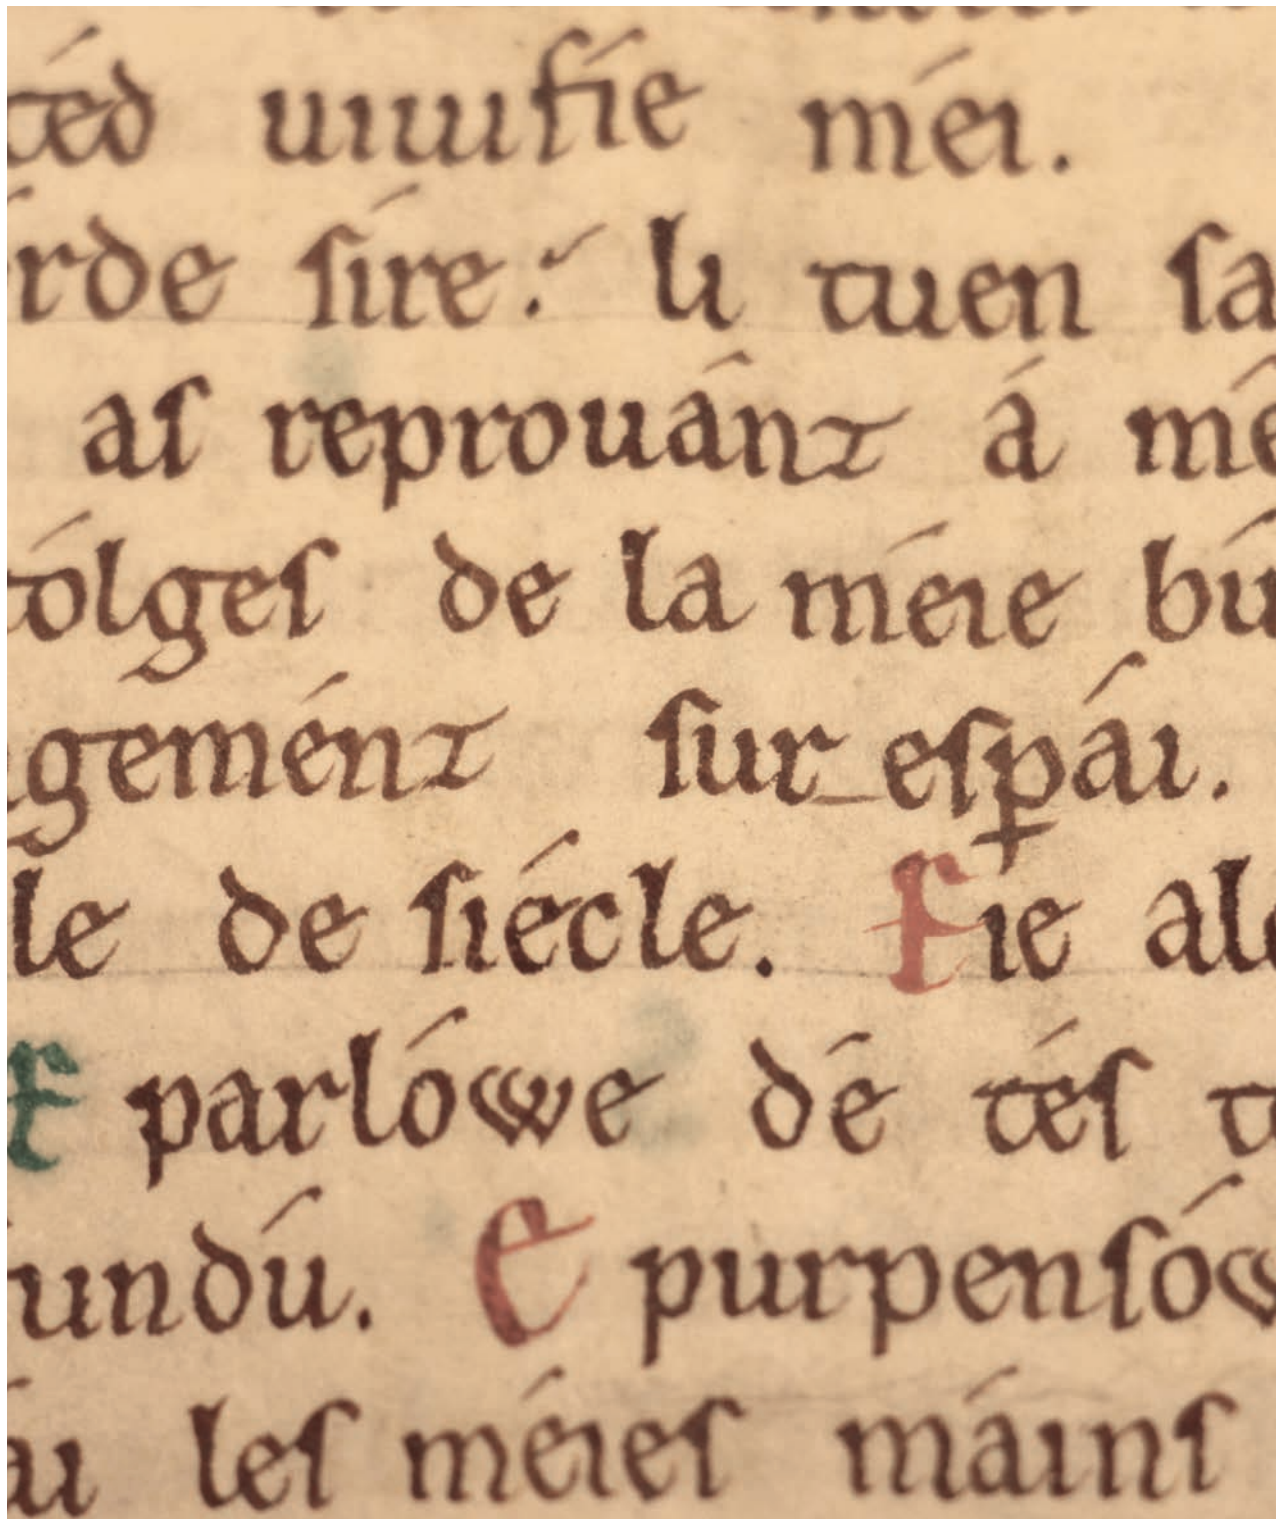 téd uiuifie méi.
rde ſire: li tuen ſa
aſ reprouánt á mé
tólgeſ de la méie bú
gemént ſur eſꝑái.
le de ſiécle. E ie alo
E parlówe dé téſ t
undú. E purpenſów
u leſ méieſ máinſ